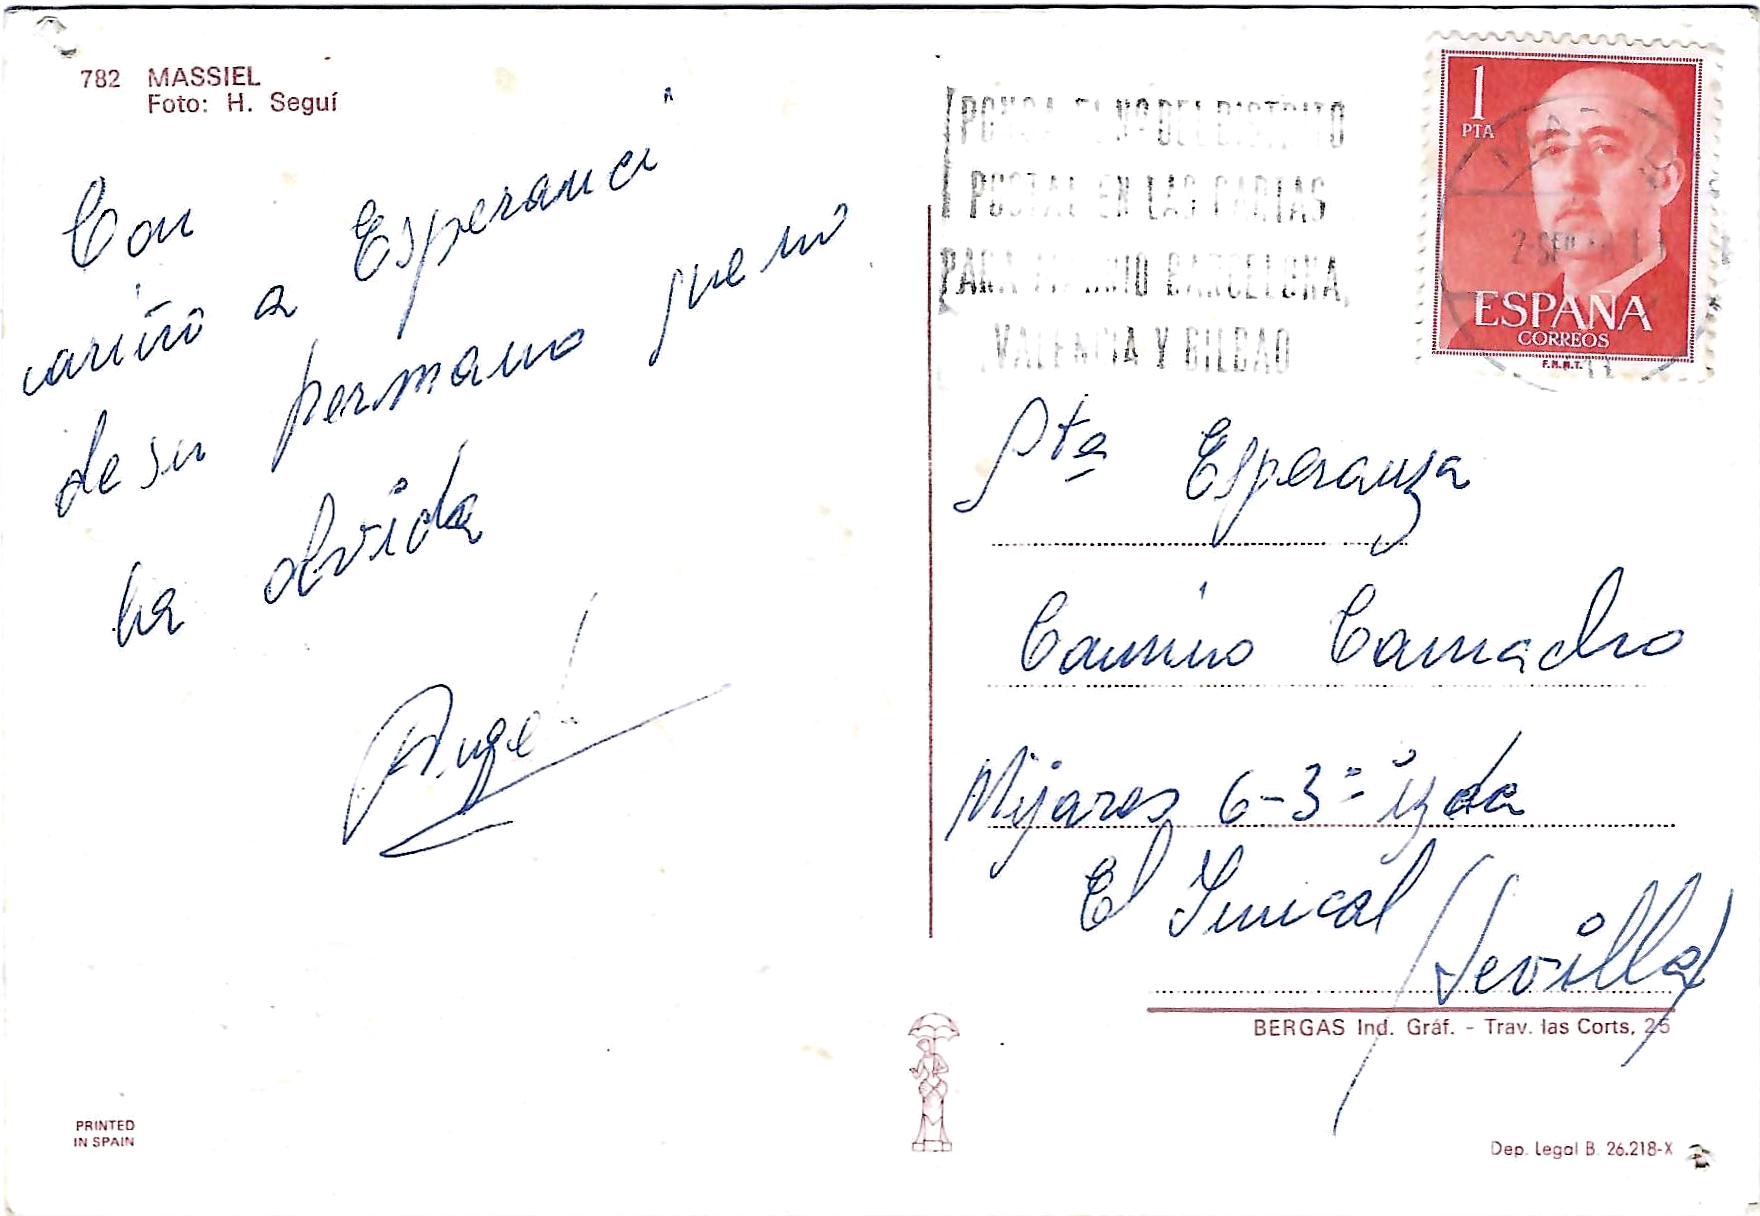 782 MASSIEL
Foto: H. Seguí
Con
cariño a Esperanci
de su hermano que no
la olvida
Angel
PONGA EL Nº DEL DISTRITO
POSTAL EN LAS CARTAS
PARA MADRID BARCELONA,
VALENCIA Y BILBAO
1
PTA
ESPAÑA
CORREOS
F.N.M.T.
Sta Esperanza
Camino Camacho
Mijares 6-3º izda
El
(Sevilla)
BERGAS Ind. Gráf. - Trav. las Corts, 25
PRINTED
IN SPAIN
Dep. Legal B. 26.218-X